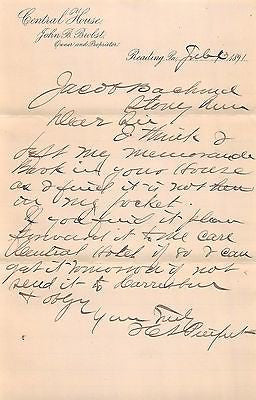 Central House,
John B. Brobst,
Owner and Proprietor
Reading, Pa., Feb 1891.
Jacob Bachman
Stony Run
Dear Sir
I think I
left my memoranda
Book in your House
as I find it is not here
in my pocket.
If you find it please
forward it to the care
Central Hotel if so I can
get it tomorrow if not
send it to Harrisburg
& oblige
Yours Truly